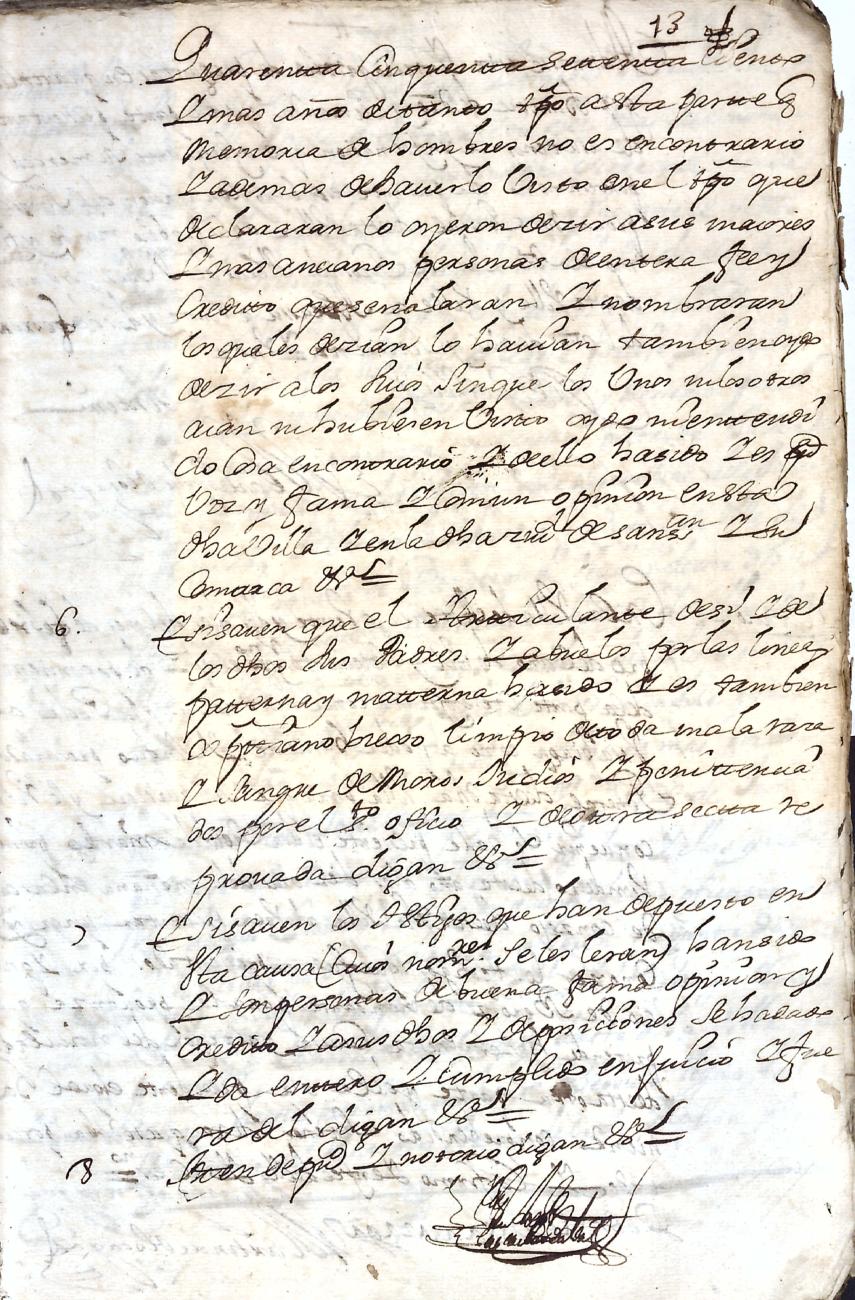 13
Quarenta Cinquenta setenta Cento
Y mas años de tanto tpo a esta parte q
Memoria de hombres no es encontrario
Y ademas de hauerlo visto en el tpo que
declararan lo oyeron dezir a sus maiores
Y mas ancianos personas de entera fee y
Credito que señalaran Y nombraran
los quales dezian lo hauian tambien oydo
dezir a los suios sin que los Unos ni los otros
aian ni hubiesen Visto oydo ni entendi
do Cosa en contrario Y dello ha sido Y es
Voz y fama Y Comun opinion en esta
dha Villa Y en la dha de san Y su
Comarca &a
6. Y si sauen que el Articulante de si Y de
los dhos sus Padres Y abuelos por las lineas
paterna y materna ha sido Y es tambien
xptiano biexo limpio de toda mala raza
Y sangre de Moros Judios Y penitencia
dos por el sto oficio Y de otra secta re
prouada digan &a
7 Y si sauen los testigos que han depuesto en
esta causa (Cuios nomes se les leran) han sido
Y son personas de buena fama opinion y
Credito Y a sus dhos Y deposiciones se ha dado
Y da entero Y Cumplido en juicio Y fue
ra del digan &a
8 = Iten de pco Y notorio digan &a